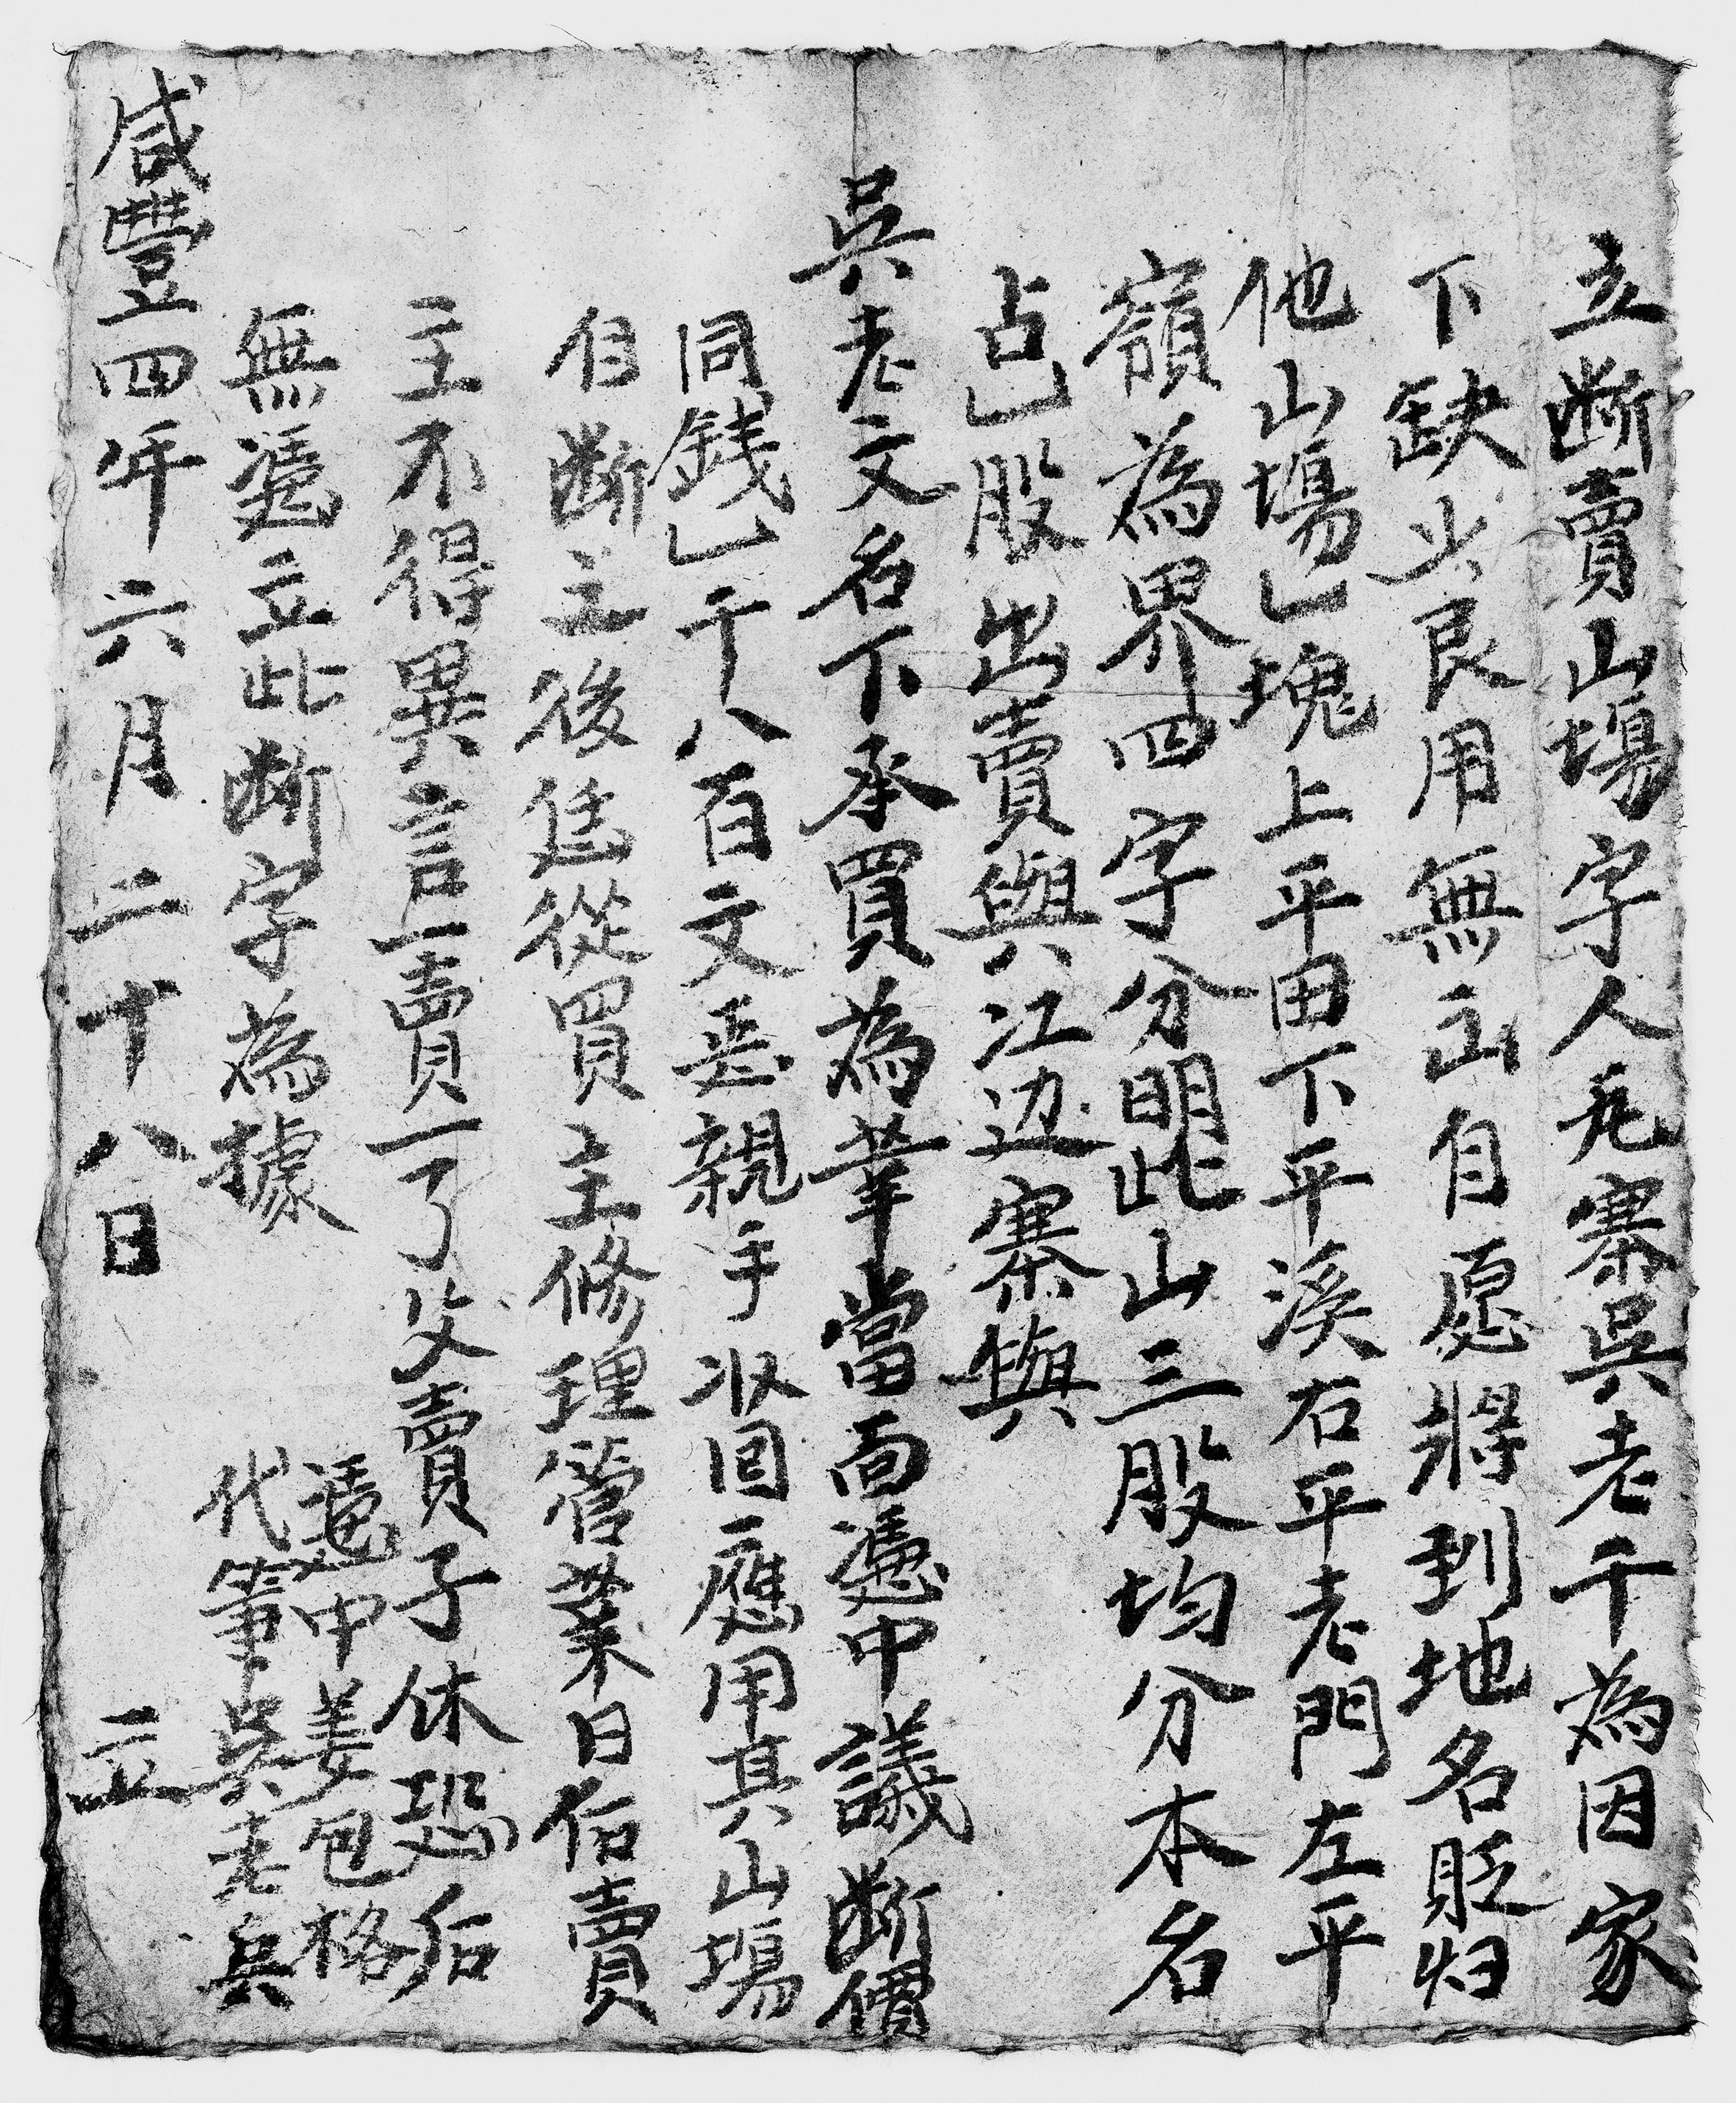 立斷賣山場字人㐂寨吳老千為因家
下缺少艮用無出自愿將到地名貶归
他山塲乙塊上平田下平溪右平老門左平
嶺為界四字分明此山三股均分本名
占乙股出賣與江边寨與
吳老文名下承買為業當面憑中議斷價
同錢乙千八百文垩親手收回應用其山塲
自斷之後恁從買主修理管業日佰賣
主不得異言一賣一了父賣子休恐后
無憑立此斷字為據
憑中姜包格
代筆吳老兵
咸豐四年六月二十八日 立